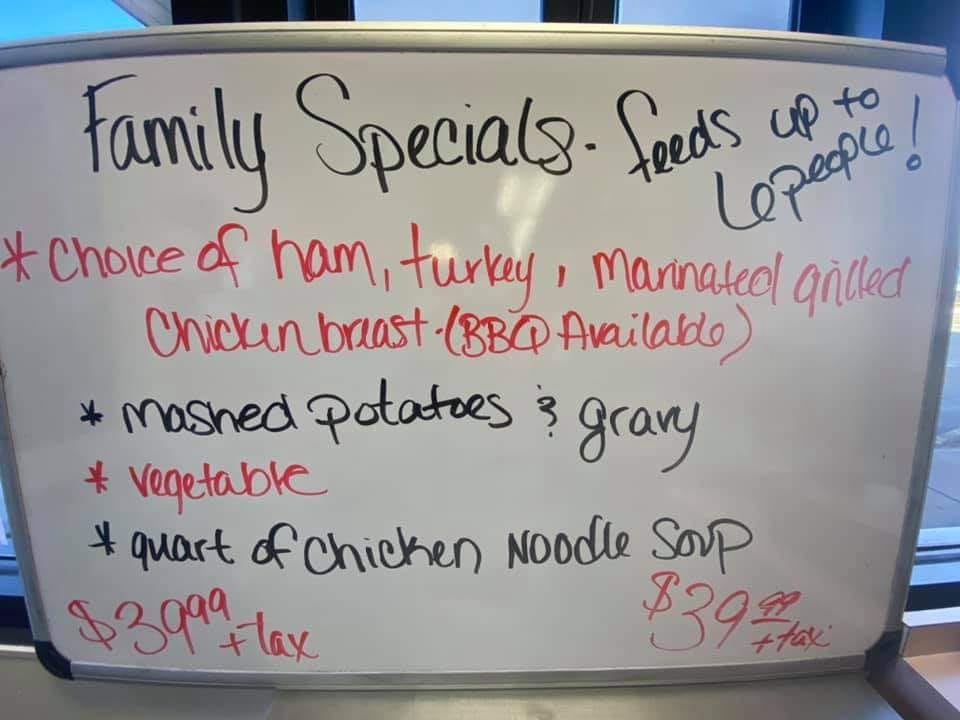 Family Specials. feeds up to
6 people!
* Choice of ham, turkey, Marinated grilled
Chicken breast. (BBQ Available)
* mashed potatoes & gravy
* vegetable
* quart of Chicken Noodle Soup
$39.99 + tax
$39.99 + tax